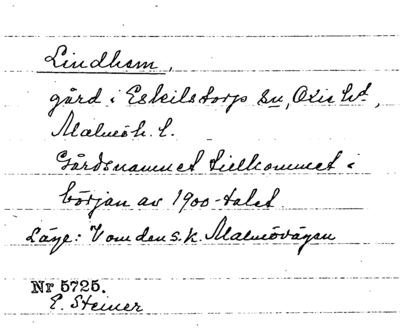 Lindhem,
gård i Eskilstorps sn, Oxie hd,
Malmöh. l.
Gårdsnamnet tillkommet i
början av 1900-talet.
Läge: V om den s.k. Malmövägen
Nr 5725.
E. Steiner